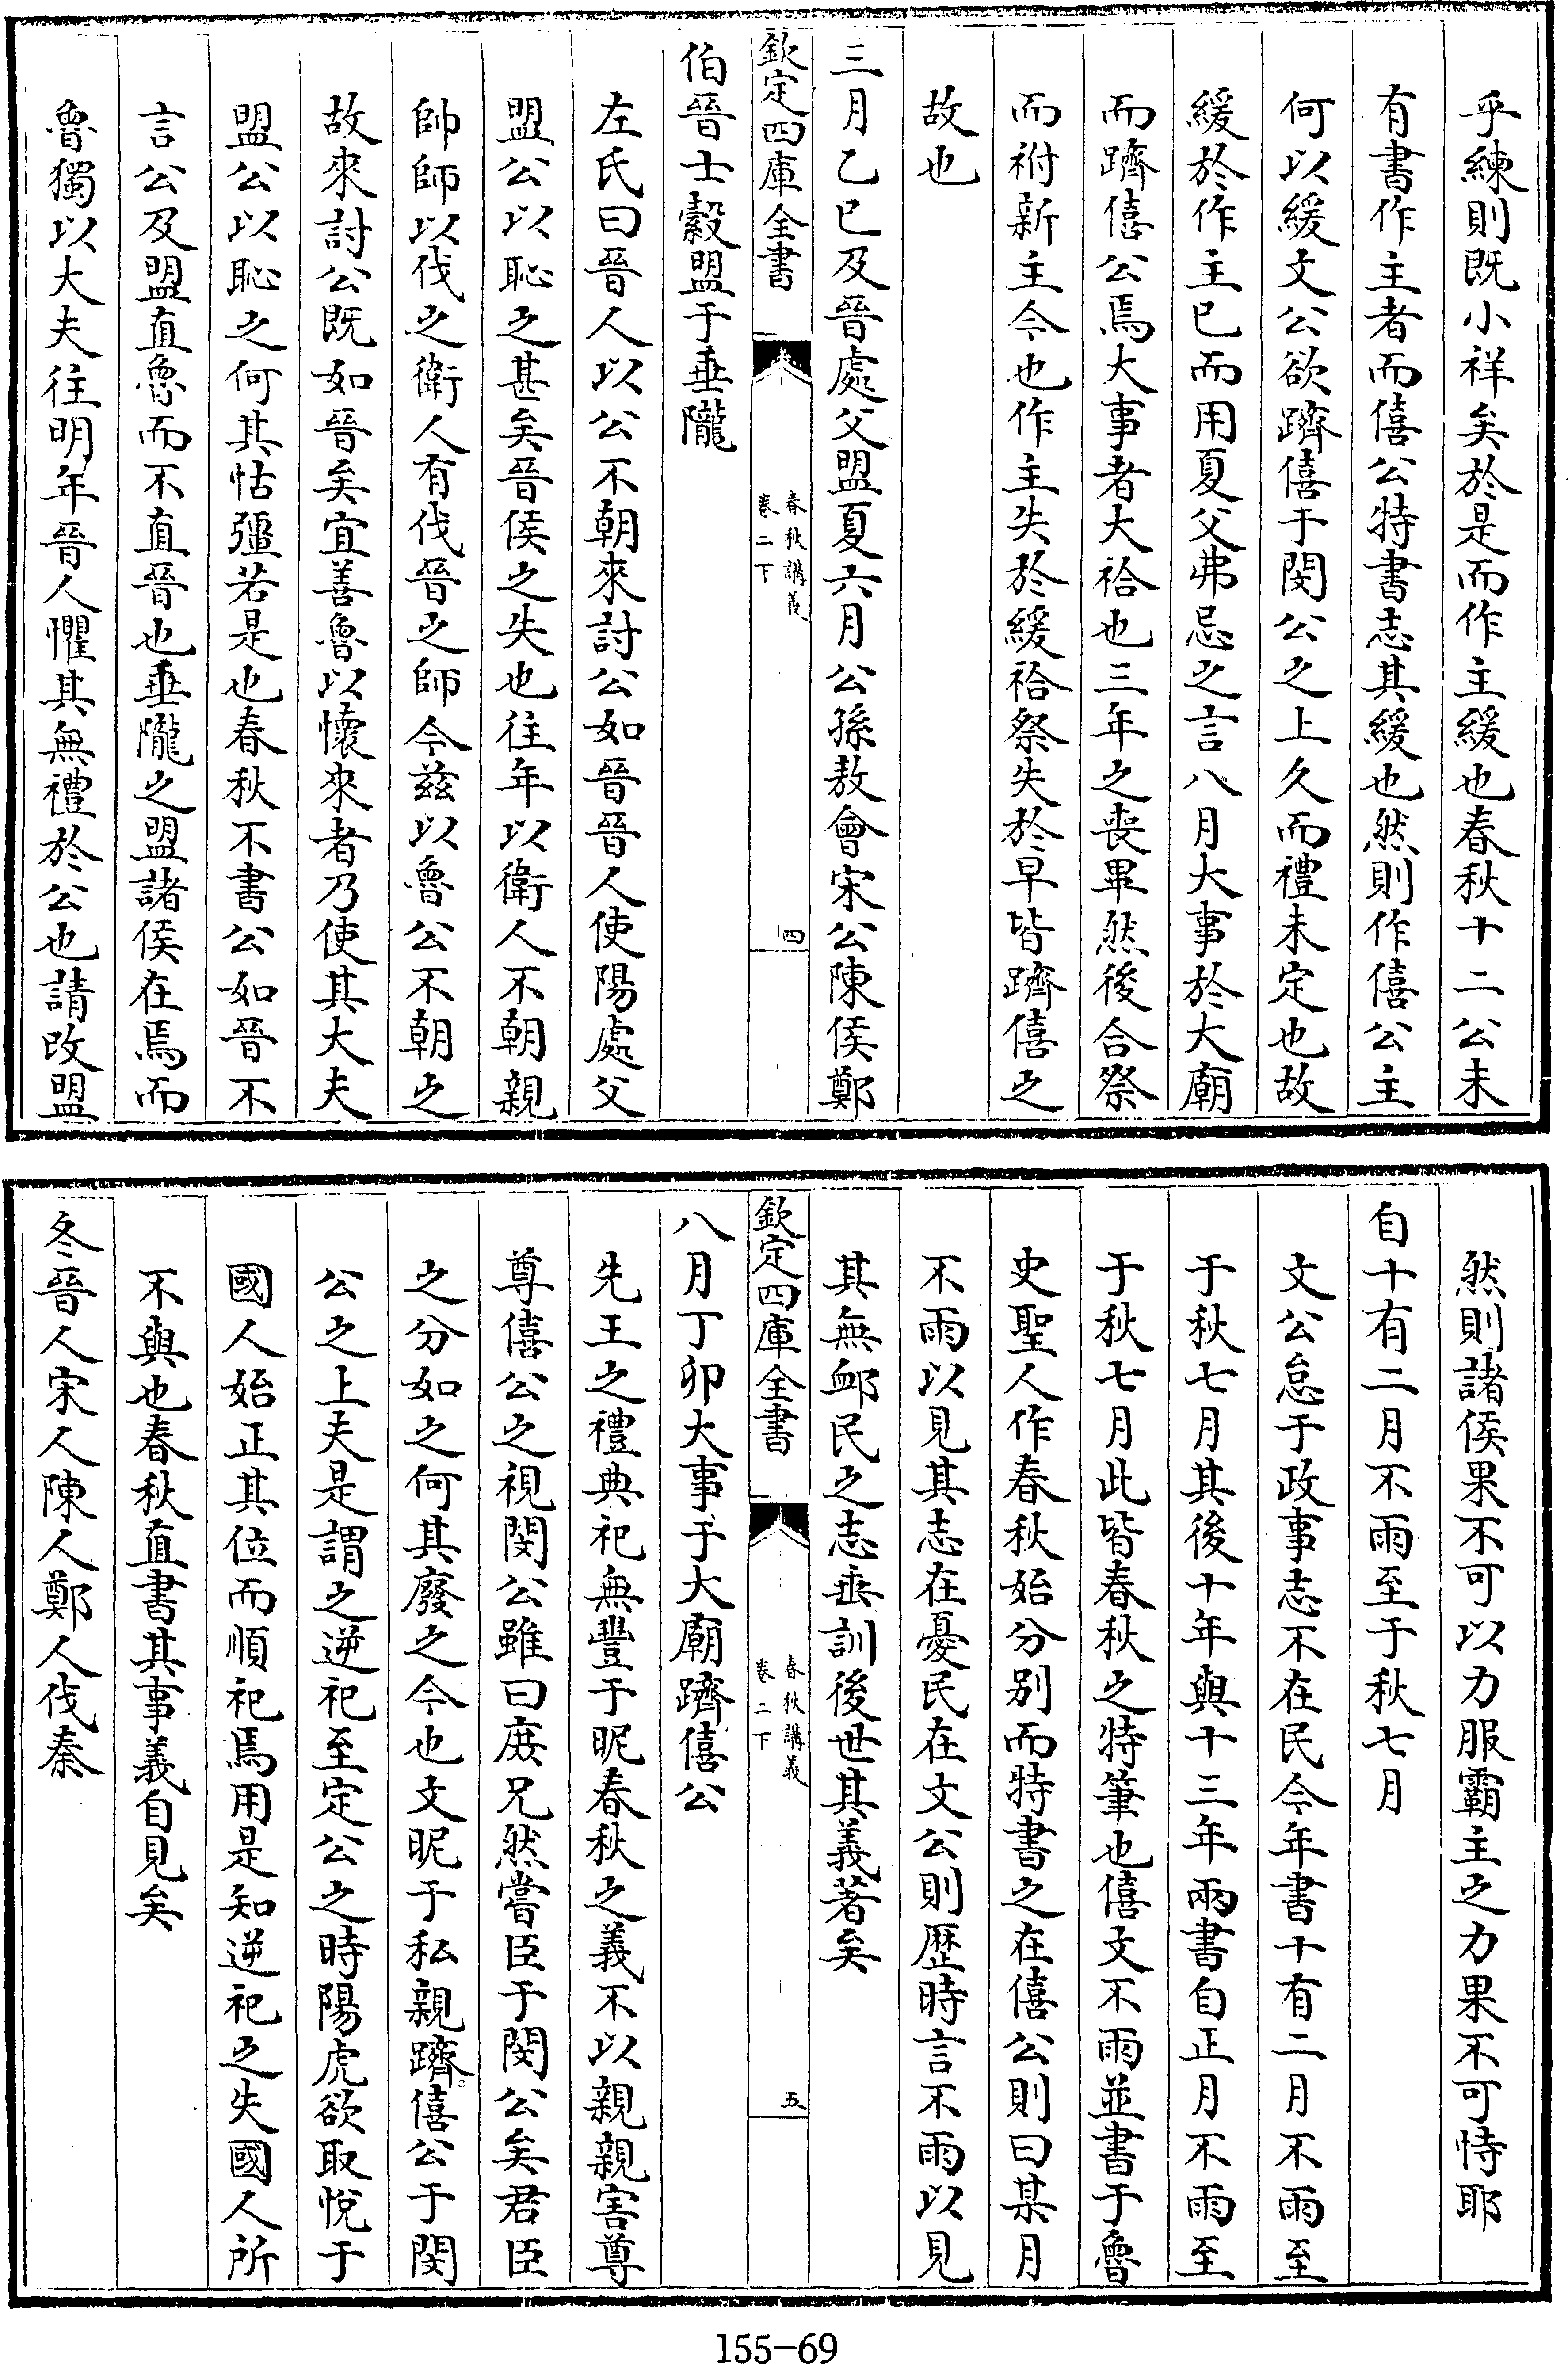 乎練則既小祥矣於是而作主緩也春秋十二公未
有書作主者而僖公特書志其緩也然則作僖公主
何以緩文公欲躋僖于閔公之上久而禮未定也故
緩於作主已而用夏父弗忌之言八月大事於大廟
而躋僖公焉大事者大祫也三年之喪畢然後合祭
而祔新主今也作主失於緩祫祭失於早皆躋僖之
故也
三月乙巳及晉處父盟夏六月公孫敖會宋公陳侯鄭
欽定四庫全書
春秋講義
卷二下
四
伯晉士縠盟于垂隴
左氏曰晉人以公不朝來討公如晉晉人使陽處父
盟公以恥之甚矣晉侯之失也往年以衛人不朝親
帥師以伐之衛人有伐晉之師今兹以魯公不朝之
故來討公既如晉矣宜善魯以懷來者乃使其大夫
盟公以恥之何其怙彊若是也春秋不書公如晉不
言公及盟直魯而不直晉也垂隴之盟諸侯在焉而
魯獨以大夫往明年晉人懼其無禮於公也請改盟
然則諸侯果不可以力服霸主之力果不可恃耶
自十有二月不雨至于秋七月
文公怠于政事志不在民今年書十有二月不雨至
于秋七月其後十年與十三年兩書自正月不雨至
于秋七月此皆春秋之特筆也僖文不雨並書于魯
史聖人作春秋始分别而特書之在僖公則曰某月
不雨以見其志在憂民在文公則歷時言不雨以見
其無卹民之志垂訓後世其義著矣
欽定四庫全書
春秋講義
卷二下
五
八月丁卯大事于大廟躋僖公
先王之禮典祀無豐于昵春秋之義不以親親害尊
尊僖公之視閔公雖曰庶兄然嘗臣于閔公矣君臣
之分如之何其廢之今也文昵于私親躋僖公于閔
公之上夫是謂之逆祀至定公之時陽虎欲取悅于
國人始正其位而順祀焉用是知逆祀之失國人所
不與也春秋直書其事義自見矣
冬晉人宋人陳人鄭人伐秦
155-69